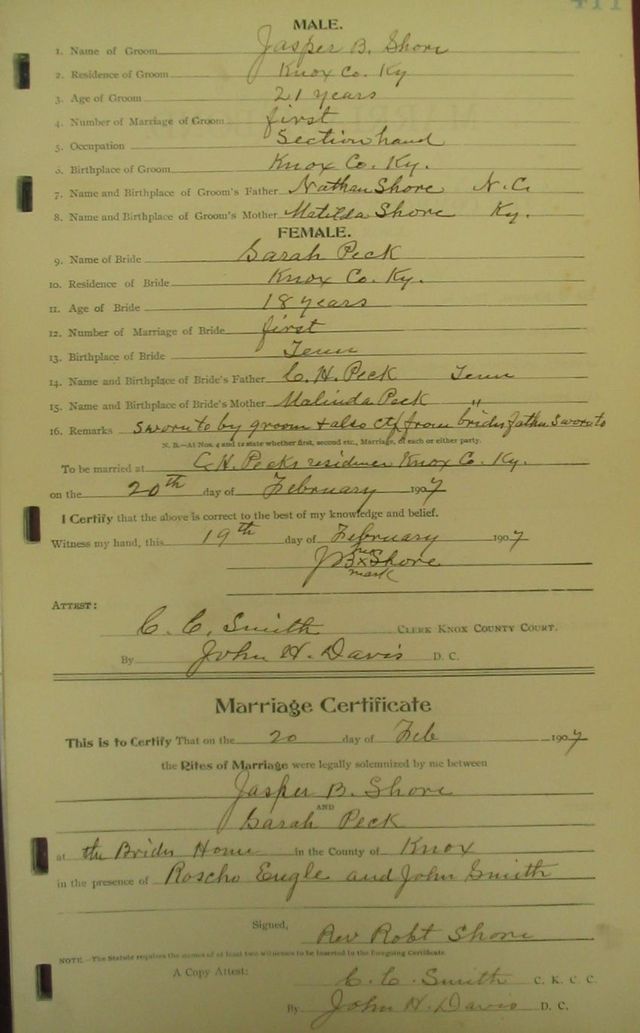 411
MALE.
1. Name of Groom Jasper B. Shore
2. Residence of Groom Knox Co. Ky
3. Age of Groom 21 years
4. Number of Marriage of Groom first
5. Occupation Section hand
6. Birthplace of Groom Knox Co. Ky.
7. Name and Birthplace of Groom's Father Nathan Shore N.C.
8. Name and Birthplace of Groom's Mother Matilda Shore Ky.
FEMALE.
9. Name of Bride Sarah Peck
10. Residence of Bride Knox Co. Ky.
11. Age of Bride 18 years
12. Number of Marriage of Bride first
13. Birthplace of Bride Tenn
14. Name and Birthplace of Bride's Father C. H. Peck Tenn
15. Name and Birthplace of Bride's Mother Malinda Peck "
16. Remarks sworn to by groom + also ctf from brides father sworn to
N. B.—At Nos. 4 and 12 state whether first, second etc., Marriage, of each or either party.
To be married at C H. Pecks residence Knox Co. Ky.
on the 20th day of February 1907
I Certify that the above is correct to the best of my knowledge and belief.
Witness my hand, this 19th day of February 1907
his
J B x Shore
mark
ATTEST:
C. C. Smith CLERK KNOX COUNTY COURT.
By John H. Davis D. C.
Marriage Certificate
This is to Certify That on the 20 day of Feb 1907
the Rites of Marriage were legally solemnized by me between
Jasper B. Shore
AND
Sarah Peck
at the Brides Home in the County of Knox
in the presence of Roscho Engle and John Smith
Signed,
Rev Robt Shore
NOTE.—The Statute requires the names of at least two witnesses to be inserted in the foregoing Certificate.
A Copy Attest: C. C. Smith C. K. C. C.
By John H. Davis D. C.